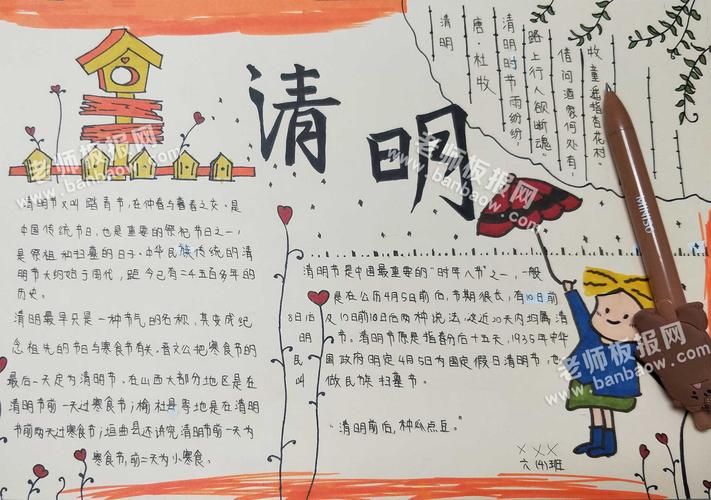 清明
清明
唐·杜牧
清明时节雨纷纷,
路上行人欲断魂。
借问酒家何处有,
牧童遥指杏花村。
清明节又叫踏青节,在仲春与暮春之交。是
中国传统节日,也是重要的祭祀节日之一,
是祭祖和扫墓的日子。中华民族传统的清
明节大约始于周代,距今已有二千五百多年的
历史。
清明最早只是一种节气的名称,其变成纪
念祖先的节日与寒食节有关。晋文公把寒食节的
最后一天定为清明节。在山西大部分地区是在
清明节前一天过寒食节;榆社县等地是在清明
节前两天过寒食节;垣曲县还讲究清明节前一天为
寒食节,前二天为小寒食。
清明节是中国最重要的“时年八节”之一,一般
是在公历4月5日前后,节期很长,有10日前
8日后及10日前10日后两种说法,这近20天内均属清
明节。清明节原是指春分后十五天,1935年中华
民国政府明定4月5日为国定假日清明节,也
叫做民族扫墓节。
“清明前后,种瓜点豆。”
XXX
六(4)班
MINISO
老师板报网
www.banbaow.com
老师板报网
www.banbaow.com
老师板报网
www.banbaow.com
老师板报网
www.banbaow.com